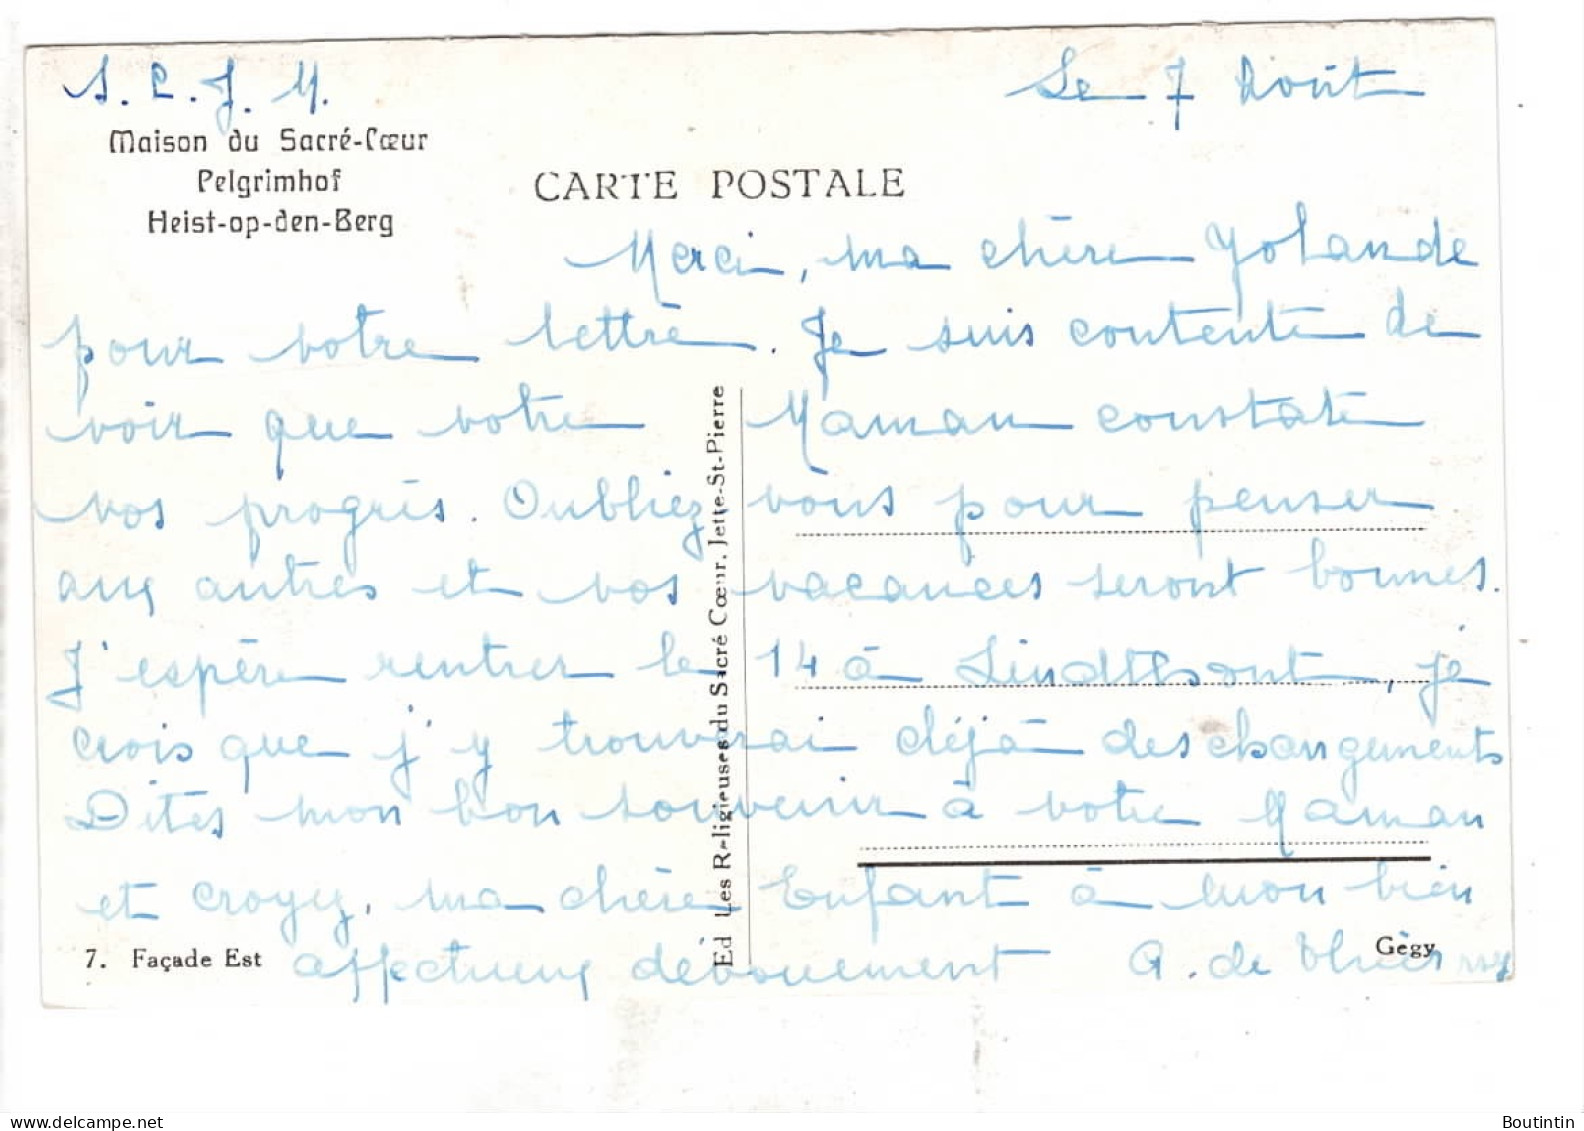 S. C. J. M.
Le 7 Août
Maison du Sacré-Cœur
Pelgrimhof
Heist-op-den-Berg
CARTE POSTALE
Merci, ma chère Yolande
pour votre lettre. Je suis contente de
voir que votre Maman constate
vos progrès. Oubliez vous pour penser
aux autres et vos vacances seront bonnes.
J'espère rentrer le 14 à Lindthout, je
crois que j'y trouverai déjà des changements
Dites mon bon souvenir à votre Maman
et croyez, ma chère Enfant à mon bien
affectueux dévouement A. de
7. Façade Est
Gégy
Ed Les Religieuses du Sacré Cœur. Jette-St-Pierre
Boutintin